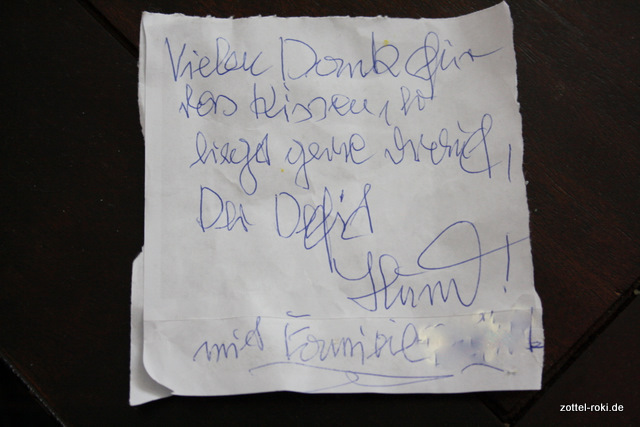 Vielen Dank für
das Kissen, so
liegt gerne
Der Defizit
Hund!
mit Familie
zottel-roki.de